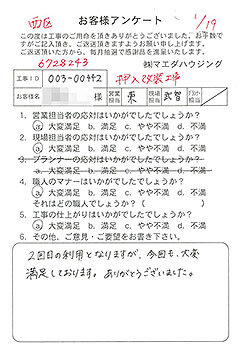 西区 お客様アンケート 1/19
この度は工事のご用命を頂きありがとうございました。お手数で
すがご記入頂き、ご返送頂きますようお願い申し上げます。
ご返送頂いた方から、毎月抽選で感謝品を進呈いたします。
6728243 ㈱マエダハウジング
工事ID 003-00442 押入改装工事
様 営業担当 東 現場担当
1. 営業担当者の応対はいかがでしたでしょうか?
a. 大変満足 b. 満足 c. やや不満 d. 不満
2. 現場担当者の応対はいかがでしたでしょうか?
a. 大変満足 b. 満足 c. やや不満 d. 不満
3. プランナーの応対はいかがでしたでしょうか?
a. 大変満足 b. 満足 c. やや不満 d. 不満
4. 職人のマナーはいかがでしたでしょうか?
a. 大変満足 b. 満足 c. やや不満 d. 不満
それはどの職人でしょうか?( )
5. 工事の仕上がりはいかがでしたでしょうか?
a. 大変満足 b. 満足 c. やや不満 d. 不満
6. その他、ご意見・ご要望をお書き下さい。
2回目の利用となりますが、今回も、大変
満足しております。ありがとうございました。